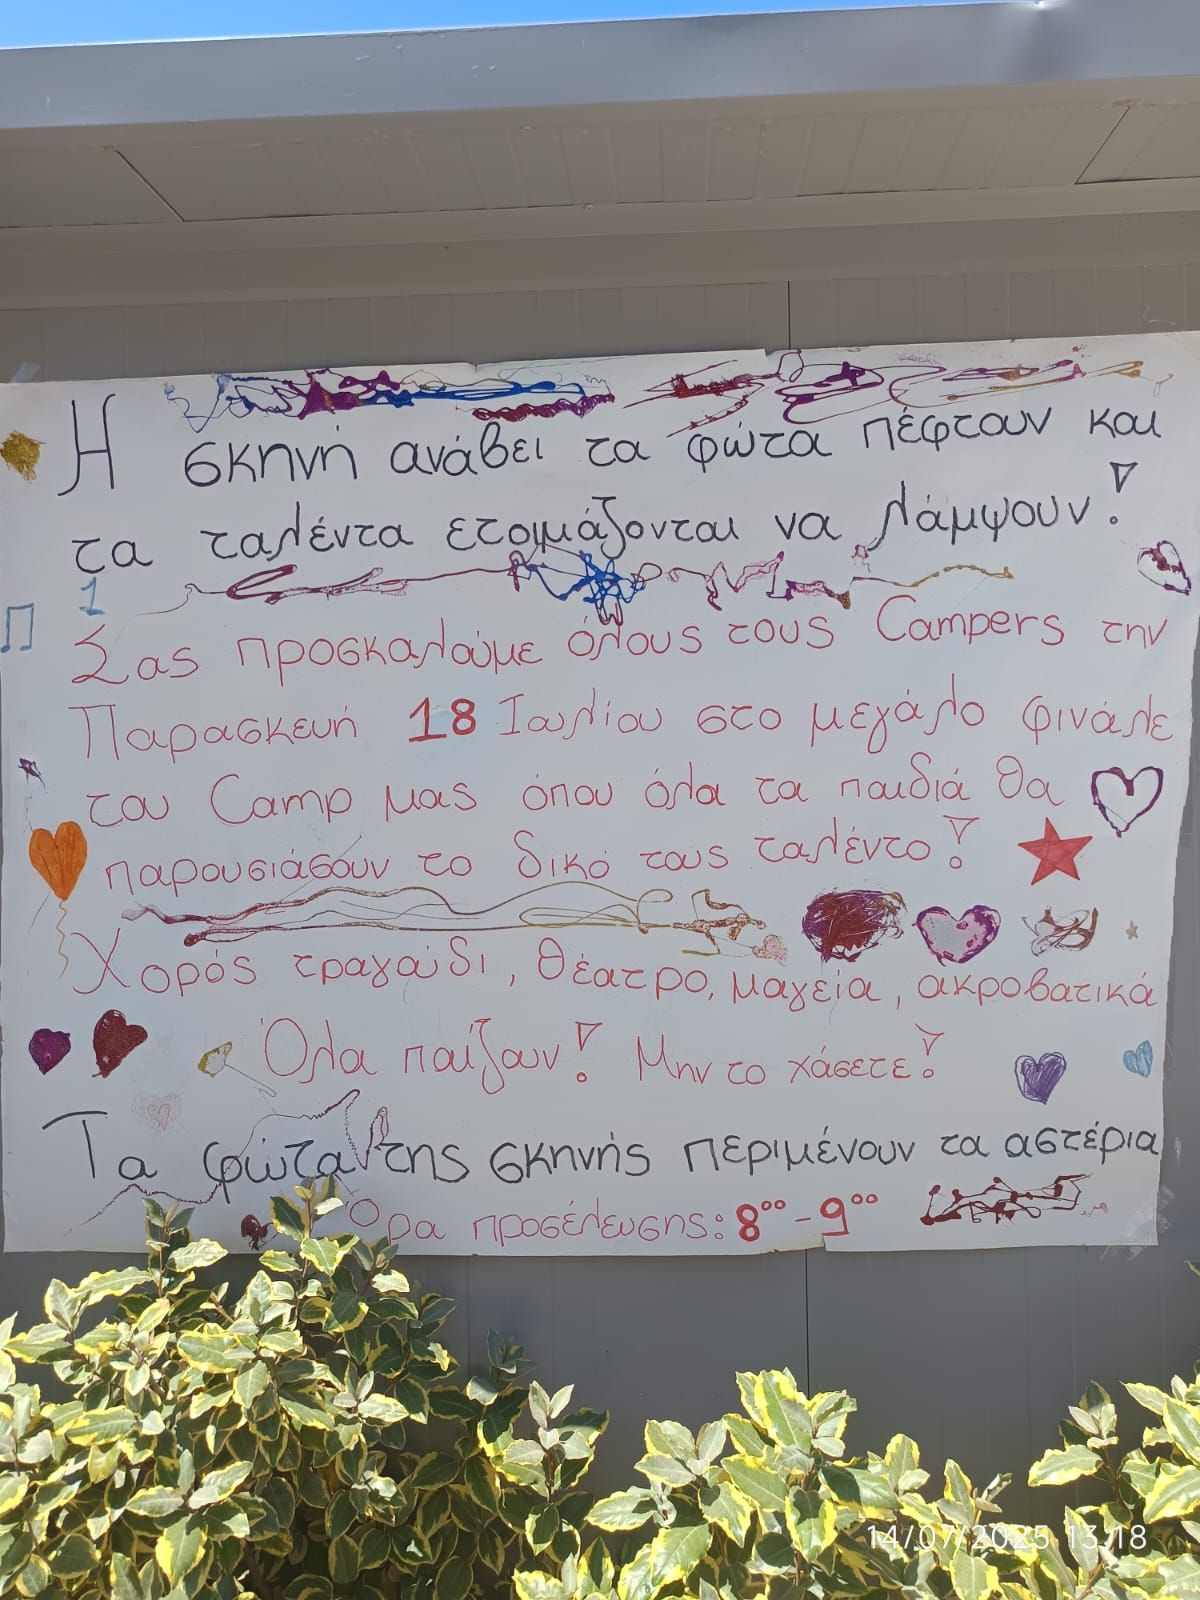 Η σκηνή ανάβει τα φώτα πέφτουν και
τα ταλέντα ετοιμάζονται να λάμψουν!
Σας προσκαλούμε όλους τους Campers την
Παρασκευή 18 Ιουλίου στο μεγάλο φινάλε
του Camp μας όπου όλα τα παιδιά θα
παρουσιάσουν το δικό τους ταλέντο!
Χορός τραγούδι, θέατρο, μαγεία, ακροβατικά
Όλα παίζουν! Μην το χάσετε!
Τα φώτα της σκηνής περιμένουν τα αστέρια
Ώρα προσέλευσης: 8⁰⁰ - 9⁰⁰
14/07/2025 13:18